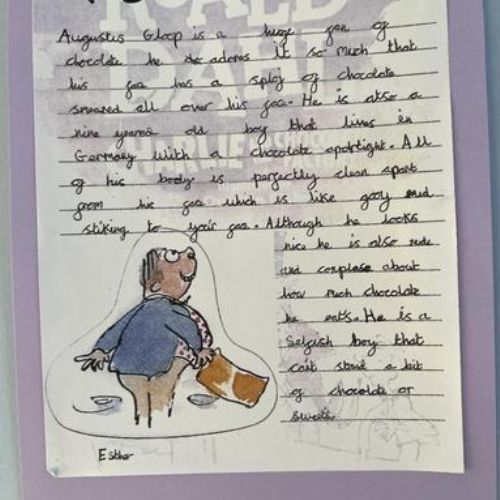 ROALD
DAHL
Augustus Gloop is a huge fan of
chocolate he adores it so much that
his face has a sploj of chocolate
smeared all over his face. He is also a
nine yeares old boy that lives in
Germany with a chocolate apertight. All
of his body is perfectly clean apart
from his face which is like gooy mud
stiking to your face. Although he looks
nice he is also rude
and complase about
how much chocolate
he eats. He is a
Selfish boy that
cait stand a bit
of chocolate or
sweets.
Esther